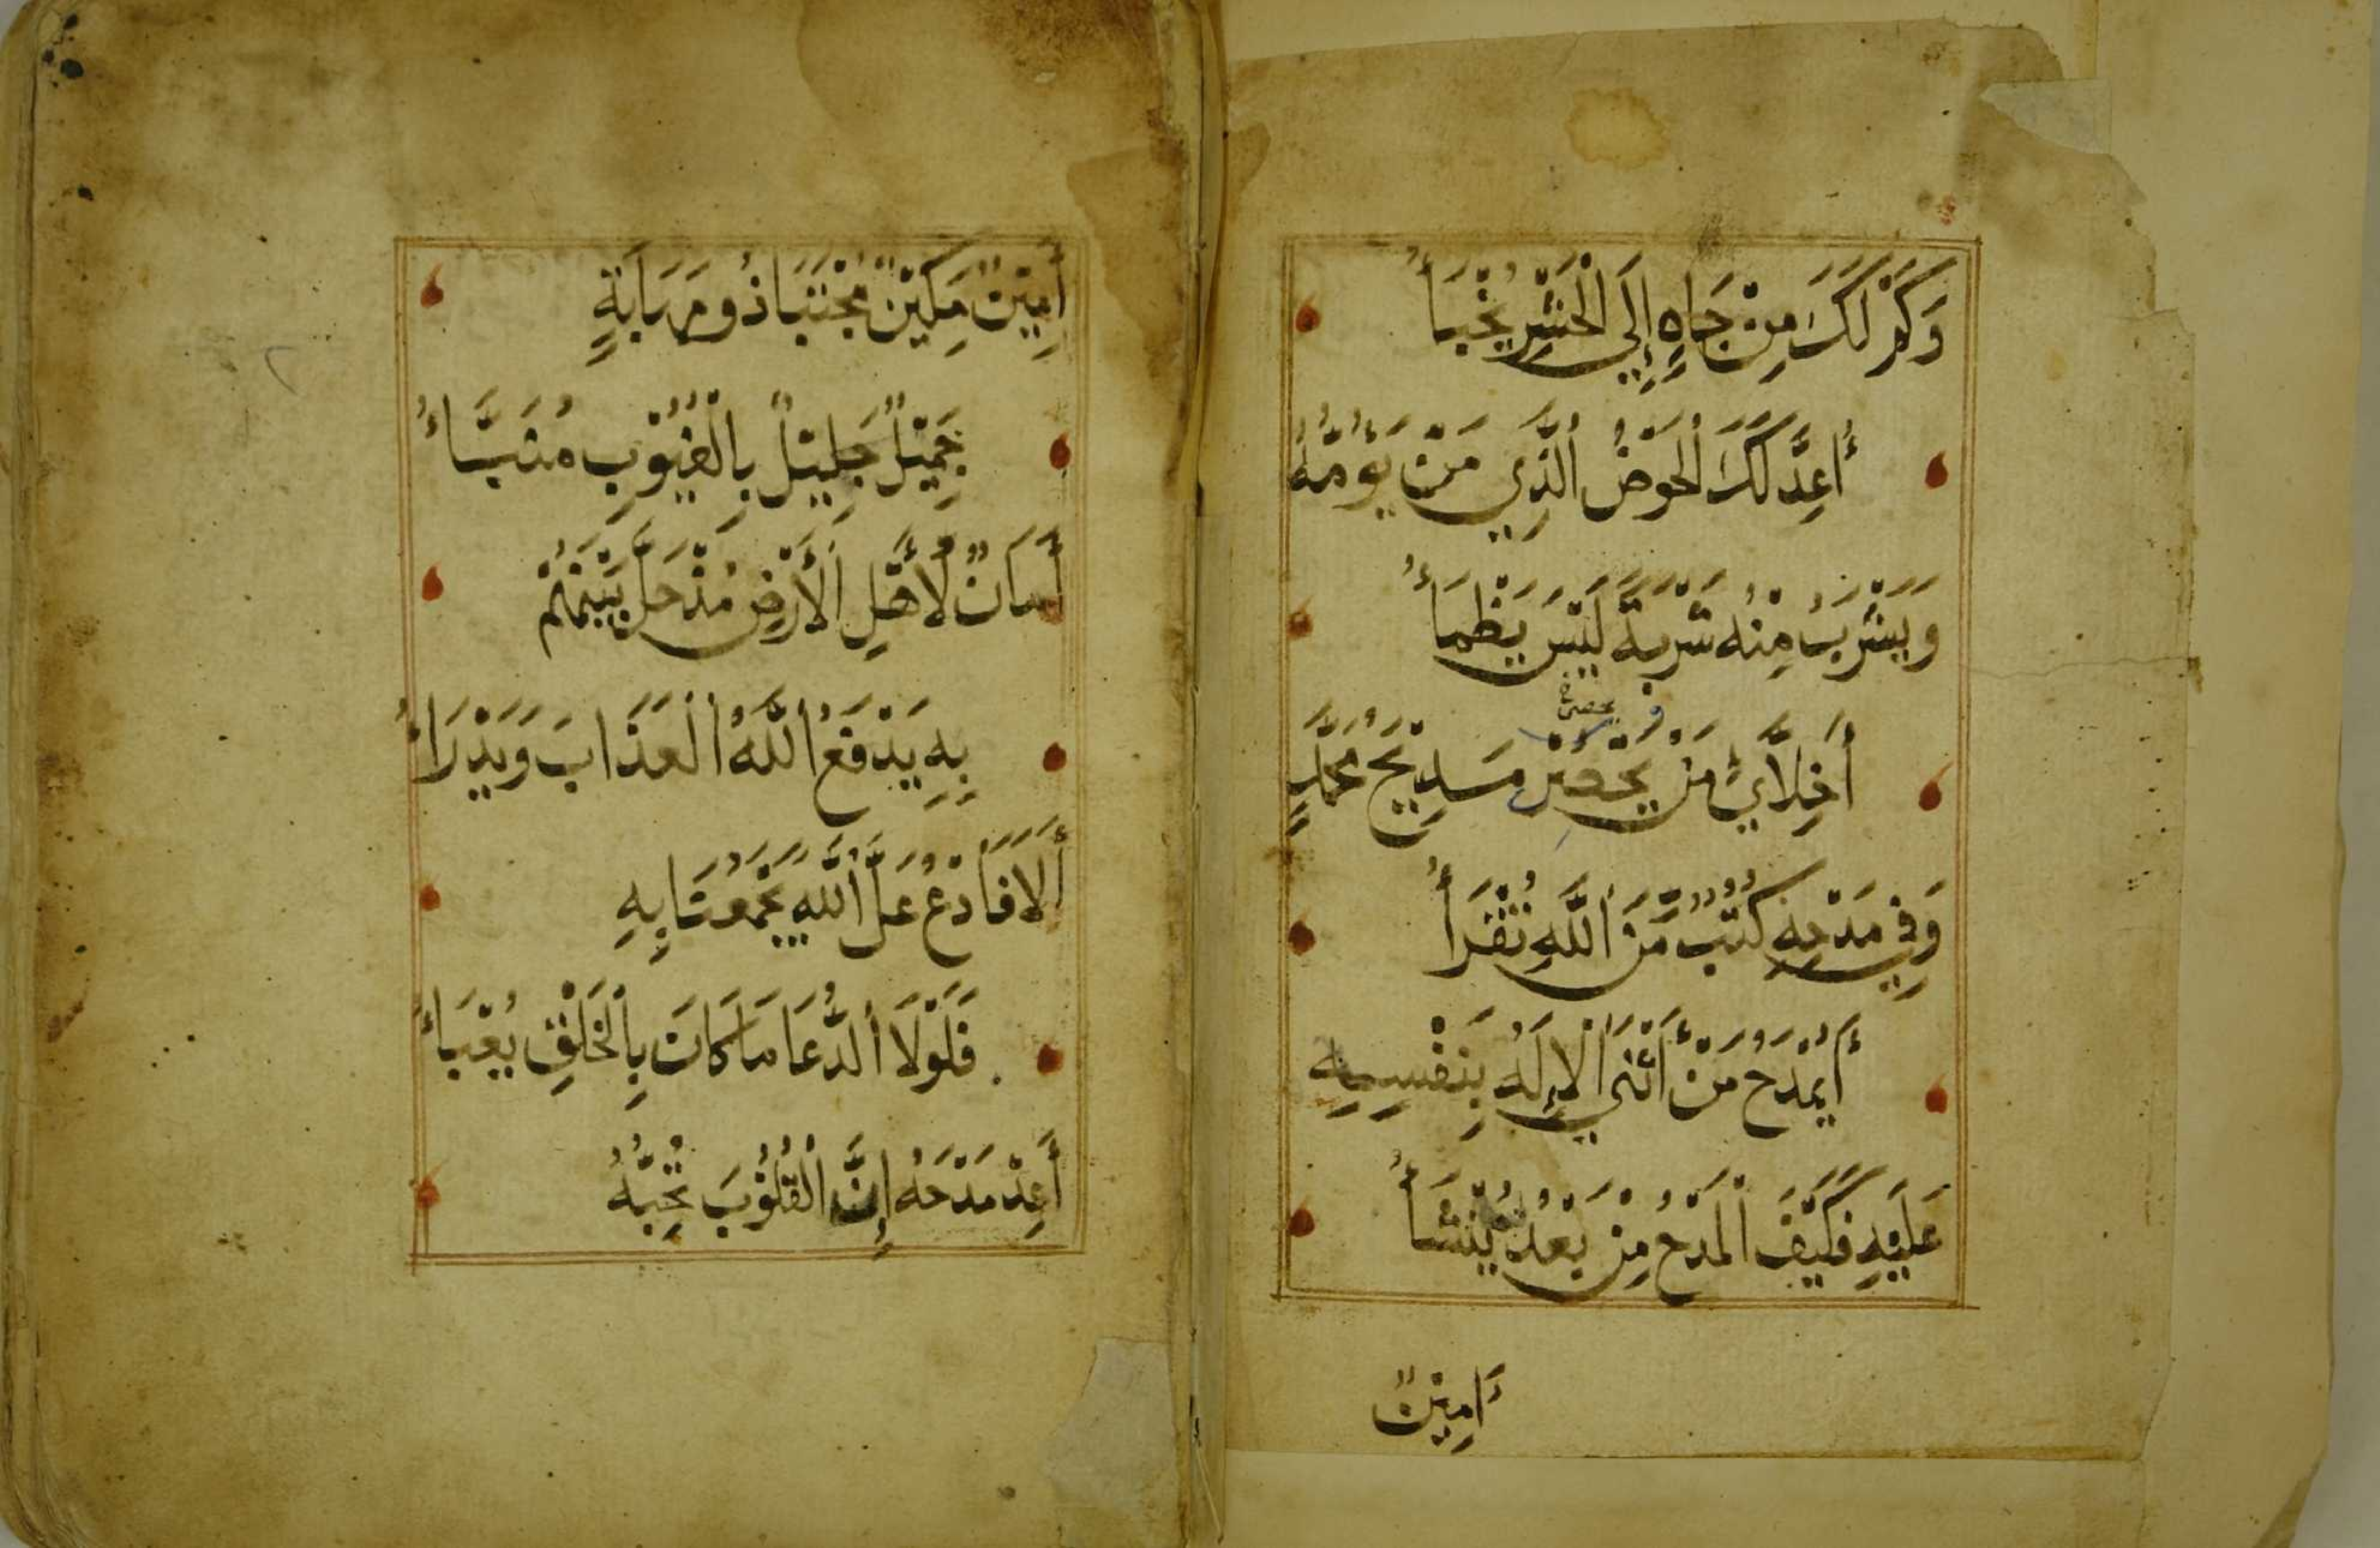 وَكَمْ لَكَ مِنْ جَاهٍ إِلَى الْحَشْرِ يُخْبَأُ
أُعِدَّ لَكَ الْحَوْضُ الَّذِي مَنْ يَؤُمُّهُ
وَيَشْرَبُ مِنْهُ شَرْبَةً لَيْسَ يَظْمَأُ
يحصى
أَخِلَّايَ مَنْ يُحْصِي مَدِيْحَ مُحَمَّدٍ
وَفِي مَدْحِهِ كُتْبٌ مِّنَ اللَّهِ تُقْرَأُ
أَيُمْدَحُ مَنْ أَثْنَى الْإِلَهُ بِنَفْسِهِ
عَلَيْهِ فَكَيْفَ الْمَدْحُ مِنْ بَعْدُ يُنْشَأُ
أَمِيْنٌ
أَمِيْنٌ مَكِيْنٌ مُجْتَبَا ذُو مَهَابَةٍ
جَمِيْلٌ جَلِيْلٌ بِالْغُيُوْبِ مُنَبَّأُ
أَمَانٌ لِأَهْلِ الْأَرْضِ مُذْ حَلَّ بَيْنَهُمْ
بِهِ يَدْفَعُ اللَّهُ الْعَذَابَ وَيَدْرَأُ
أَلَا فَادْعُ عَلَّ اللَّهَ يَجْمَعُنَا بِهِ
فَلَوْلَا الدُّعَا مَا كَانَ بِالْخَلْقِ يُعْبَأُ
أَعِدْ مَدْحَهُ إِنَّ الْقُلُوْبَ تُحِبُّهُ
٢